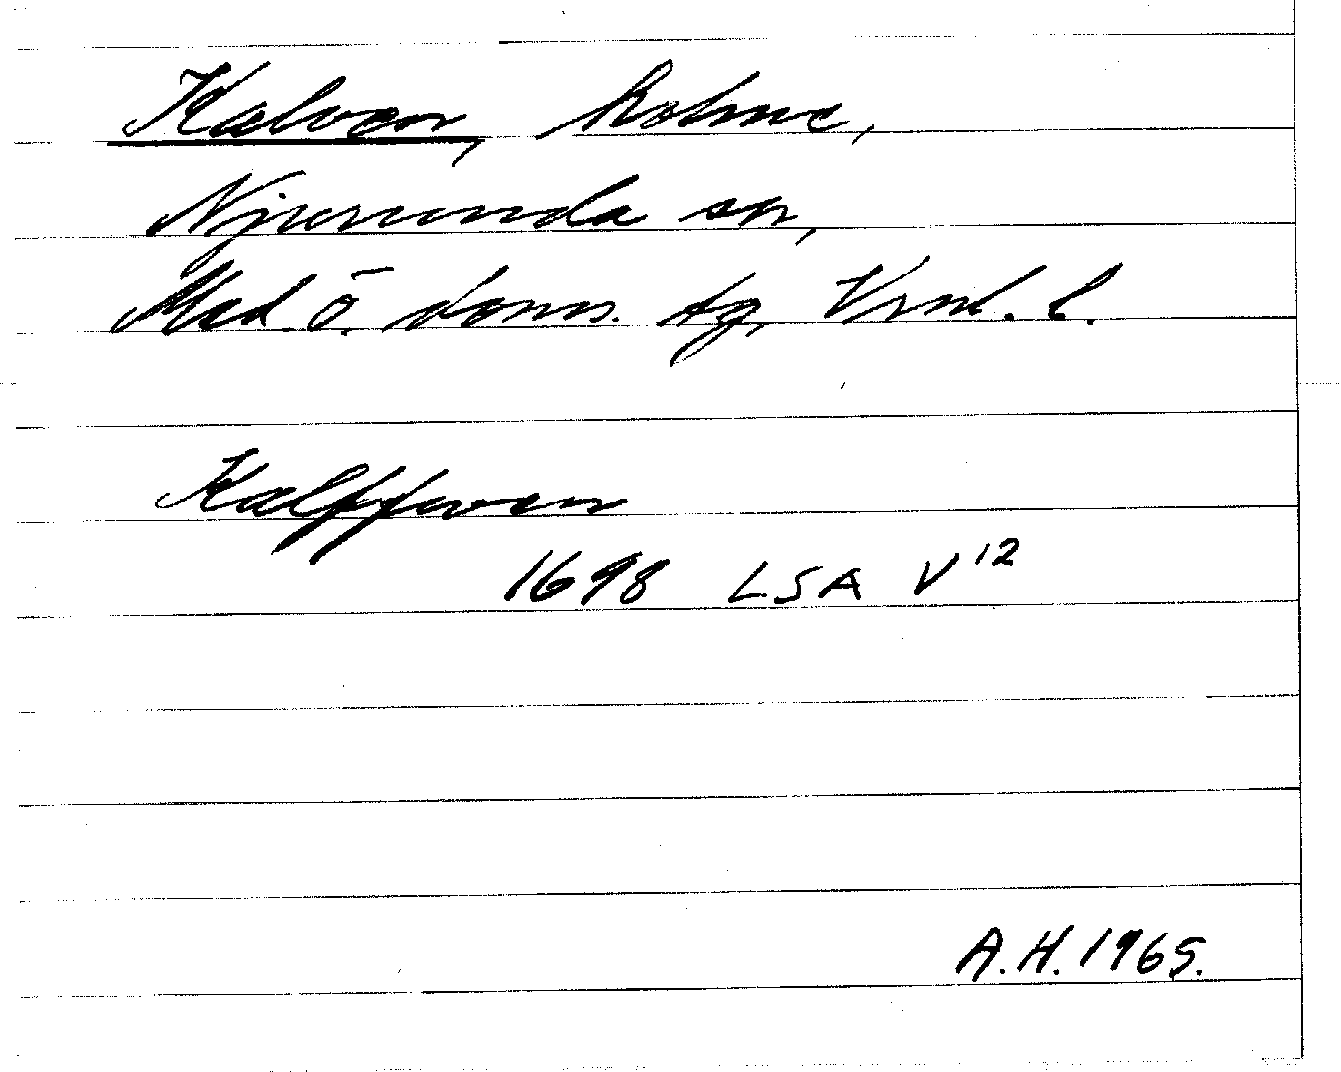 Kalven, holme,
Njurunda sn,
Med. ö. doms. tg, Vrnl. l.
Kalffwen
1698 LSA V¹²
A.H. 1965.